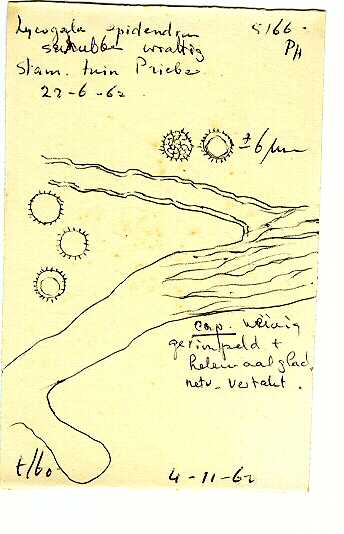 Lycogala epidendrum 5166.
schubben wrattig PH
stam. tuin Priebe
22-6-62.
± 6 µm
cap. weinig
gerimpeld +
helemaal glad.
netv. vertakt.
4-11-62